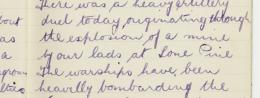 There was a heavy artillery
out duel today, originating through
as the explosion of a mine
a by our lads at Lone Pine
The warships have been
heavily bombarding the